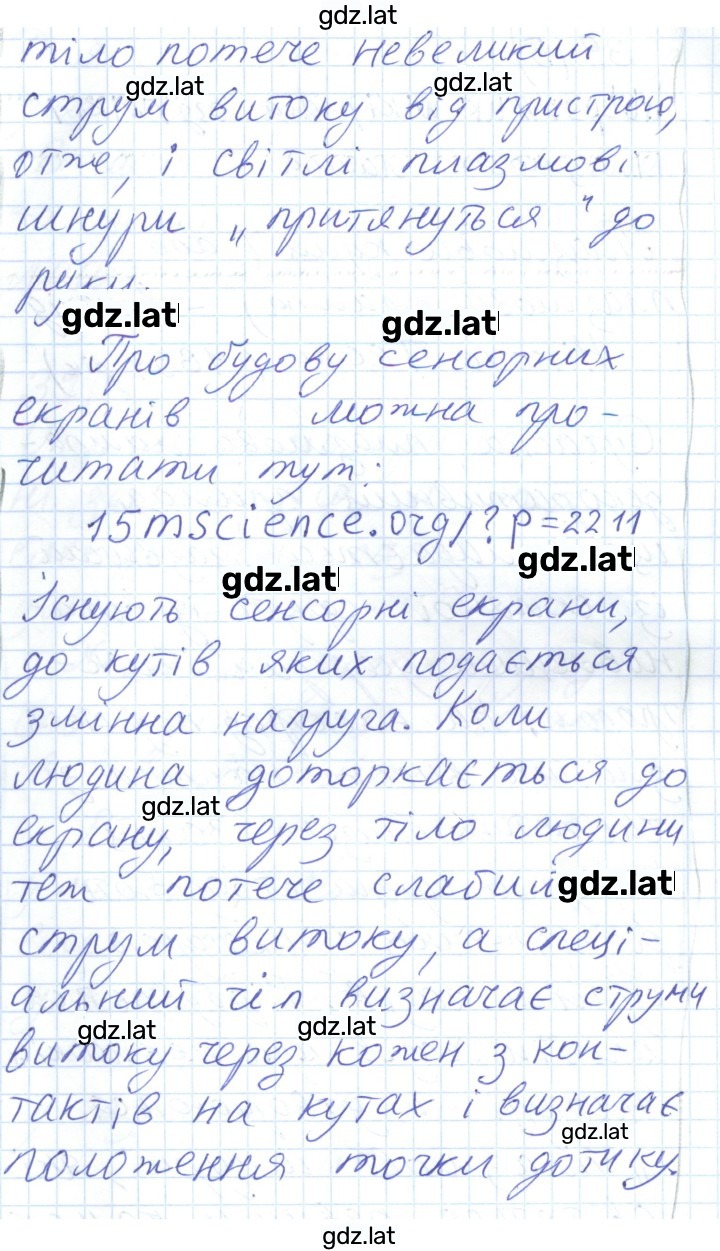 gdz.lat
тіло потече невеликий
gdz.lat gdz.lat
струм витоку від пристрою,
отже, і світлі плазмові
шнури „притянуться" до
руки.
gdz.lat gdz.lat
Про будову сенсорних
екранів можна про-
читати тут:
15mscience.org/?p=2211
gdz.lat gdz.lat
Існують сенсорні екрани,
до кутів яких подається
змінна напруга. Коли
людина доторкається до
gdz.lat
екрану, через тіло людини
теж потече слабий gdz.lat
струм витоку, а спеці-
альний чіп визначає струми
gdz.lat gdz.lat
витоку через кожен з кон-
тактів на кутах і визначає
gdz.lat
положення точки дотику.
gdz.lat